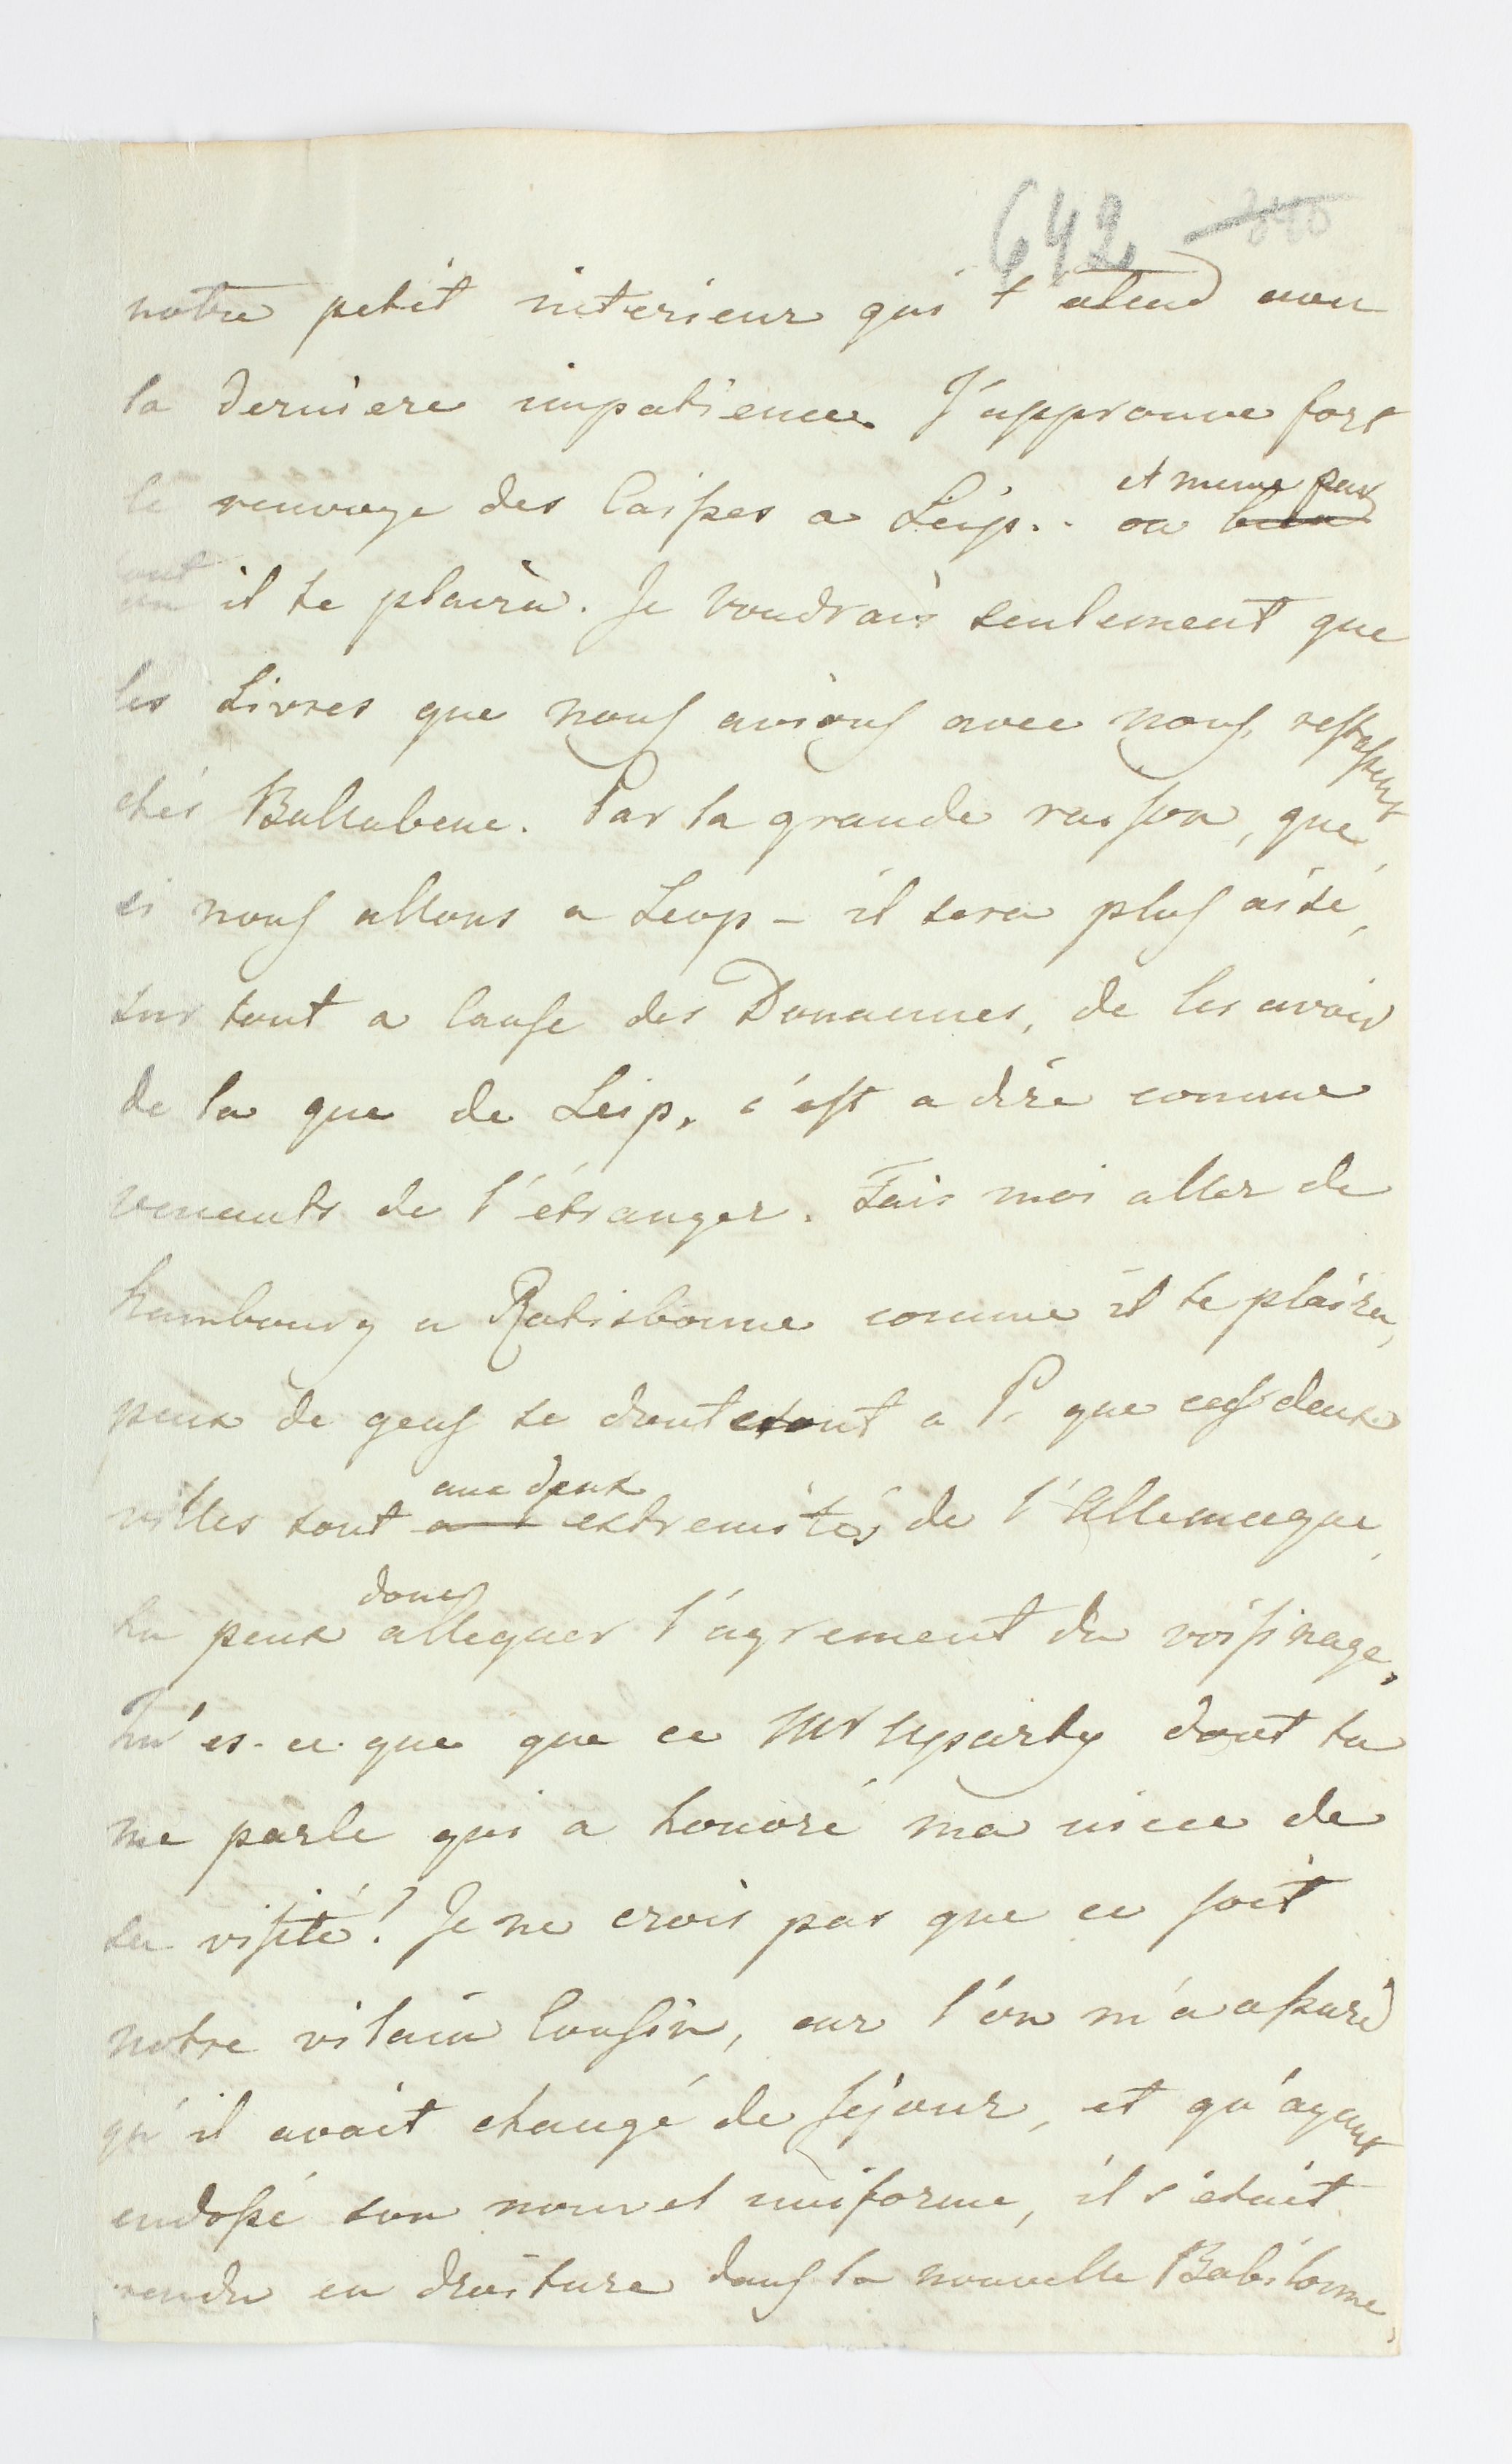 642 340
notre petit interieur qui t'atend avec
la derniere impatience. J'approuve fort
le renvoye des Caisses a Leip.. ou bien et meme par
tout ou il te plaira. Je voudrais seulement que
les Livres que nous avions avec nous, restassent
chés Ballabene. Par la grande raison, que
si nous allons a Leop - il sera plus aisé,
sur tout a cause des Donannes, de les avoir
de la que de Leip. c'est a dire comme
venants de l'étranger. Fais moi aller de
hambourg a Ratisbonne comme il te plaira,
peux de gens se doutesont a P. que ces deux
villes sont a aux deux extremités de l'Allemagne,
tu peux donc alleguer l'agrement du voisinage,
Qu'es-ce que que ce Mr dont tu
me parle qui a honoré ma niece de
sa visite? Je ne crois pas que ce soit
notre vilain Cousin, car l'on m'a assuré
qu'il avait changé de séjour, et qu'ayant
endossé son nouvel uniforme, il s'était
rendu en droiture dans la nouvelle Babilonne,